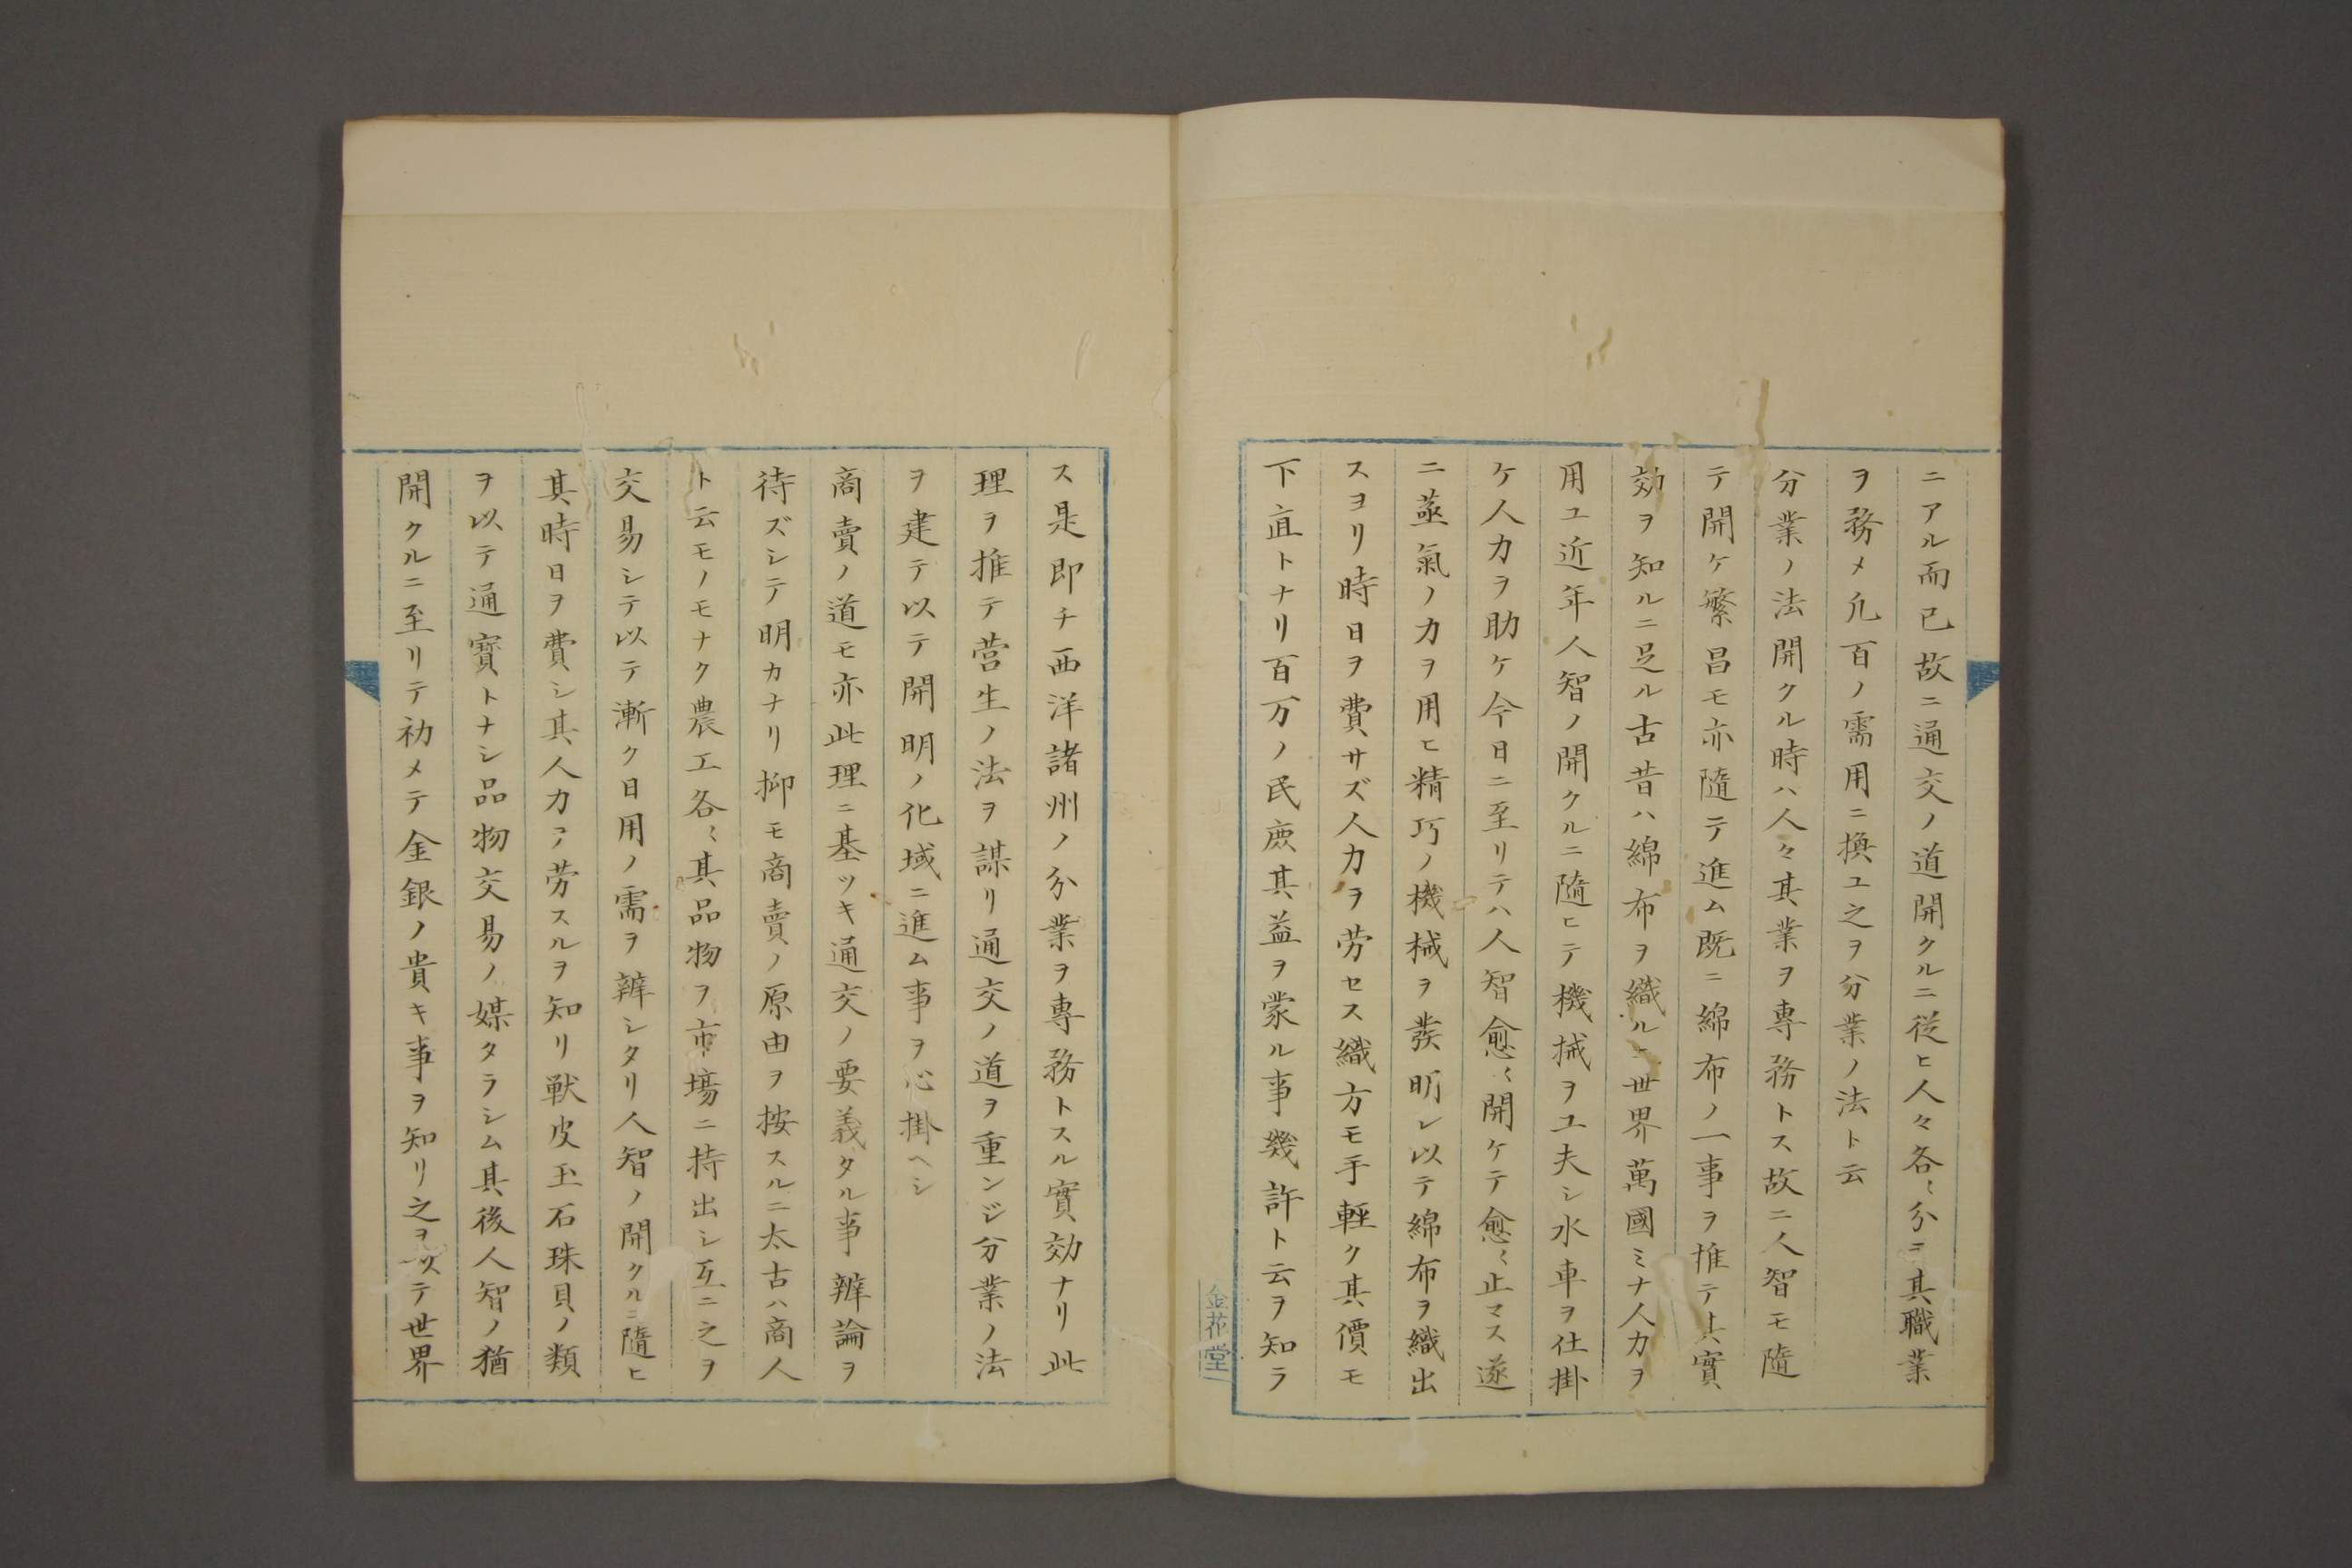 ニアル而已故ニ通交ノ道開クルニ従ヒ人々各〻分ニ其職業
ヲ務メ凡百ノ需用ニ換ユ之ヲ分業ノ法ト云
分業ノ法開クル時ハ人々其業ヲ専務トス故ニ人智モ隨
テ開ケ繁昌モ亦隨テ進ム既ニ綿布ノ一事ヲ推テ其實
効ヲ知ルニ足ル古昔ハ綿布ヲ織ルニ世界萬國ミナ人力ヲ
用ユ近年人智ノ開クルニ隨ヒテ機械ヲ工夫シ水車ヲ仕掛
ケ人力ヲ助ケ今日ニ至リテハ人智愈〻開ケテ愈〻止マス遂
ニ蒸氣ノ力ヲ用ヒ精巧ノ機械ヲ發明シ以テ綿布ヲ織出
スヨリ時日ヲ費サズ人力ヲ労セス織方モ手軽ク其價モ
下直トナリ百万ノ民庶其益ヲ蒙ル事幾許ト云ヲ知ラ
金花堂
ス是即チ西洋諸州ノ分業ヲ専務トスル實効ナリ此
理ヲ推テ営生ノ法ヲ謀リ通交ノ道ヲ重ンジ分業ノ法
ヲ建テ以テ開明ノ化域ニ進ム事ヲ心掛ヘシ
商賣ノ道モ亦此理ニ基ツキ通交ノ要義タル事辨論ヲ
待ズシテ明カナリ抑モ商賣ノ原由ヲ按スルニ太古ハ商人
ト云モノモナク農工各〻其品物ヲ市場ニ持出シ互ニ之ヲ
交易シテ以テ漸ク日用ノ需ヲ辨シタリ人智ノ開クルニ隨ヒ
其時日ヲ費シ其人力ヲ労スルヲ知リ獣皮玉石珠貝ノ類
ヲ以テ通寳トナシ品物交易ノ媒タラシム其後人智ノ猶
開クルニ至リテ初メテ金銀ノ貴キ事ヲ知リ之ヲ以テ世界